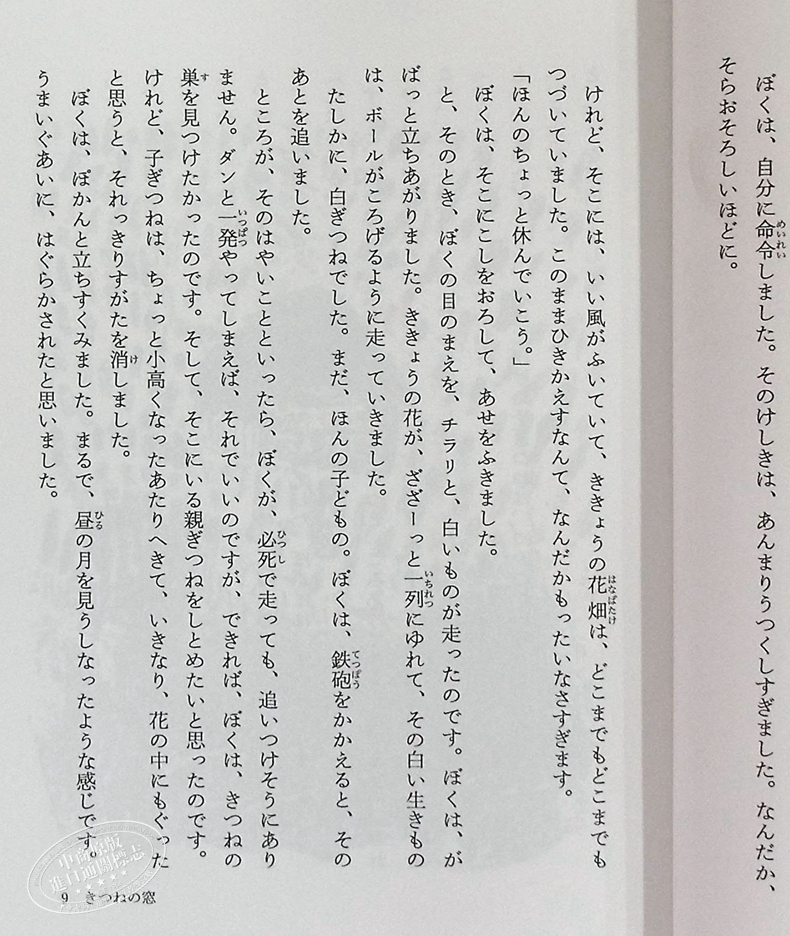 ぼくは、自分に命令しました。そのけしきは、あんまりうつくしすぎました。なんだか、
そらおそろしいほどに。
けれど、そこには、いい風がふいていて、ききょうの花畑は、どこまでもどこまでも
つづいていました。このままひきかえすなんて、なんだかもったいなさすぎます。
「ほんのちょっと休んでいこう。」
ぼくは、そこにこしをおろして、あせをふきました。
と、そのとき、ぼくの目のまえを、チラリと、白いものが走ったのです。ぼくは、が
ばっと立ちあがりました。ききょうの花が、ざざーっと一列にゆれて、その白い生きもの
は、ボールがころげるように走っていきました。
たしかに、白ぎつねでした。まだ、ほんの子どもの。ぼくは、鉄砲をかかえると、その
あとを追いました。
ところが、そのはやいことといったら、ぼくが、必死で走っても、追いつけそうにあり
ません。ダンと一発やってしまえば、それでいいのですが、できれば、ぼくは、きつねの
巣を見つけたかったのです。そして、そこにいる親ぎつねをしとめたいと思ったのです。
けれど、子ぎつねは、ちょっと小高くなったあたりへきて、いきなり、花の中にもぐった
と思うと、それっきりすがたを消しました。
ぼくは、ぽかんと立ちすくみました。まるで、昼の月を見うしなったような感じです。
うまいぐあいに、はぐらかされたと思いました。
9 きつねの窓
中商原版
進口通關標志